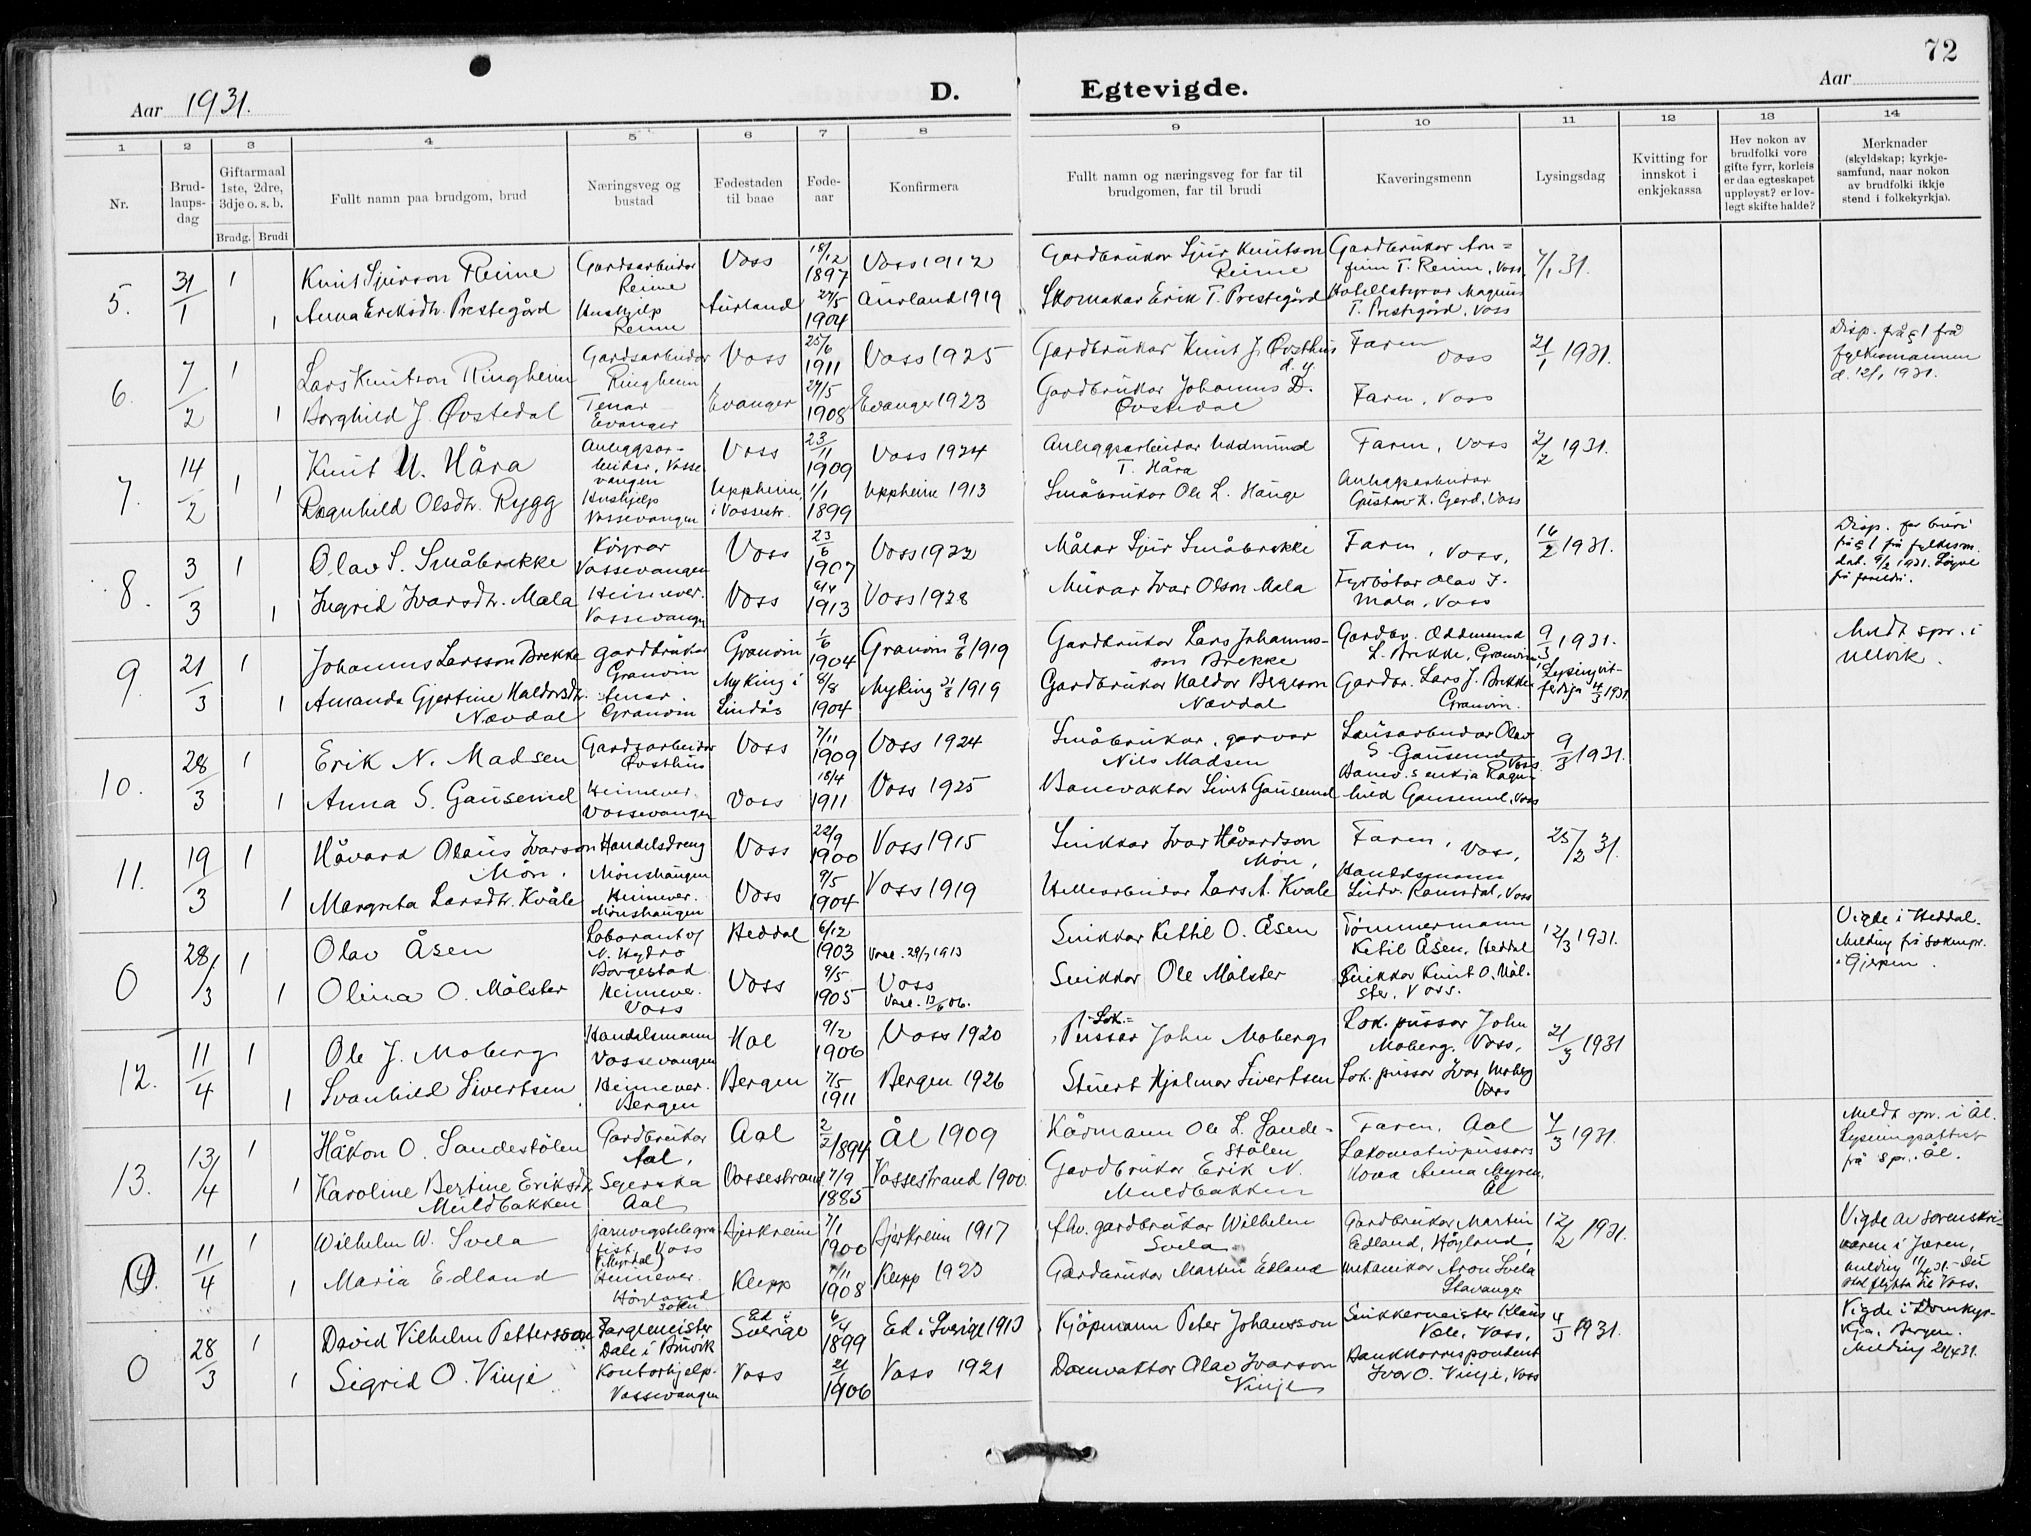 72
Aar 1931.
D. Egtevigde.
Aar
1 2 3 4 5 6 7 8 9 10 11 12 13 14
Nr.
Brud-
laups-
dag
Giftarmaal
1ste, 2dre,
3dje o. s. b.
Brudg. Brudi
Fullt namn paa brudgom, brud
Næringsveg og
bustad
Fødestaden
til baae
Føde-
aar
Konfirmera
Fullt namn og næringsveg for far til
brudgomen, far til brudi
Kaveringsmenn
Lysingsdag
Kvitting for
innskot i
enkjekassa
Hev nokon av
brudfolki vore
gifte fyrr, korleis
er daa egteskapet
uppløyst? er lov-
legt skifte halde?
Merknader
(skyldskap; kyrkje-
samfund, naar nokon
av brudfolki ikkje
stend i folkekyrkja).
5. 31/1 1 Knut Sjurson Reime Gardsarbeidar Reime Voss 18/12 1897 Voss 1912 Gardbrukar Sjur Knutson Reime Gardbrukar Arn=
finn T. Reime, Voss 7/1 31.
1 Anna Eriksdtr. Prestegård Hushjelp Reime Aurland 27/5 1904 Aurland 1919 Skomakar Erik T. Prestegård Hotellstyrar Magnus
T. Prestegård, Voss
6. 7/2 1 Lars Knutson Ringheim Gardsarbeidar Ringheim Voss 25/6 1911 Voss 1925 Gardbrukar Knut J. Øvsthus d. y. Faren Voss 21/1 1931. Disp. frå § 1 frå
fylkesmannen
d. 12/1 1931.
1 Borghild J. Øvstedal Tenar Evanger Evanger 27/5 1908 Evanger 1923 Gardbrukar Johannes D. Øvstedal Faren, Voss
7. 14/2 1 Knut U. Håra Anleggsar-
beidar, Vosse
vangen Voss 23/11 1909 Voss 1924 Anleggsarbeidar Uddmund
T. Håra Faren, Voss 2/2 1931.
1 Ragnhild Olsdtr. Rygg Hushjelp Vossevangen Uppheim,
i Vossestr. 1/1 1899 Uppheim 1913 Småbrukar Ole L. Hauge Anleggsarbeidar
Gustav K. Gjerd, Voss
8. 3/3 1 Olav S. Småbrekke Køyrar Vossevangen Voss 23/6 1907 Voss 1922 Målar Sjur Småbrekke Faren, Voss, 16/2 1931. Disp. for brudi
frå § 1 frå fylkesm.
dat. 9/2 1931. Løyve
frå foreldri.
1 Ingrid Ivarsdtr. Mala Heimever. Vossevangen Voss 6/4 1913 Voss 1928 Murar Ivar Olson Mala Fyrbøtar Olav I.
Mala, Voss
9 21/3 1 Johannes Larsson Brekke gardbrukar Granvin Granvin 1/6 1904 Granvin 9/6 1919 Gardbrukar Lars Johannes-
son Brekke Gardbr. Oddmund
L. Brekke, Granvin 9/3 1931. Meldt spr. i
Ulvik.
1 Amanda Gjertine Haldorsdtr. Nævdal tenar. Granvin Myking i
Lindås 8/8 1904 Myking 31/8 1919 Gardbrukar Haldor Bergeson
Nævdal Gardbr. Lars J. Brekke
Granvin. Lysingvit-
ferdja 4/3 1931
10. 28/3 1 Erik N. Madsen Gardsarbeidar Øvsthus Voss 7/11 1909 Voss 1924 Småbrukar, garvar
Nils Madsen Lausarbeidar Olav
S. Gausemel Voss 9/3 1931.
1 Anna S. Gausemel Heimever. Vossevangen Voss 18/4 1911 Voss 1925 Banevaktar Sivert Gausemel Banev.s enkja Ragn-
hild Gausemel, Voss
11. 19/3 1 Håvard Olaus Ivarson Møn. Handelsdreng Mønshaugen Voss 22/9 1900 Voss 1915 Snikkar Ivar Håvardson
Møn, Faren, Voss, 25/2 31.
1 Margreta Larsdtr. Kvåle Heimever. Mønshaugen Voss 9/5 1904 Voss 1919 Hellearbeidar Lars A. Kvåle Handelsmann
Ludv. Ramsdal, Voss
0 28/3 1 Olav Åsen Laborant v/
N. Hydro
Borgestad Heddal 6/12 1903 Vacc. 29/7 1913 Snikkar Kettil O. Åsen Tømmermann
Ketil Åsen, Heddal 12/3 1931. Vigde i Heddal.
Melding frå soknepr.
i Gjerpen.
1 Olina O. Mølster Heimever. Voss Voss 9/5 1905 Voss
Vacc. 13/6 06. Snikkar Ole Mølster Snikkar Knut O. Møl-
ster, Voss.
12. 11/4 1 Ole J. Moberg Handelsmann Vossevangen Hol 9/2 1906 Voss 1920 Lok.=
Pussar John Moberg Lok. pussar John
Moberg, Voss, 21/3 1931
1 Svanhild Sivertsen Heimever. Bergen Bergen 7/5 1911 Bergen 1926 Stuert Hjalmar Sivertsen Lok. pussar Ivar Moberg
Voss
13. 13/4 1 Håkon O. Sandestølen Gardbrukar Aal, Aal 2/2 1894 Ål 1909 Kårmann Ole L. Sande-
stølen Faren, Aal 7/3 1931. Meldt spr. i Ål.
Lysningsattest
frå spr. i Ål.
1 Karoline Bertine Eriksdtr. Muldbakken Syerska Aal Vossestrand 7/9 1885 Vossestrand 1900. Gardbrukar Erik N.
Muldbakken Lokomotivpussars
kona Anna Myren,
Ål
14. 11/4 1 Wilhelm W. Svela jarnvegstelegra
fist, Voss
(Myrdal) Bjerkreim 7/1 1900 Bjerkreim 1917 fhv. gardbrukar Wilhelm
Svela Gardbrukar Martin
Edland, Høyland, 12/2 1931. Vigde av sorenskri-
varen i Jæren,
melding 11/4 31. - Dei
skal flytta til Voss.
1 Maria Edland Heimever. Høyland
sokn Klepp 1908 Klepp 1923 Gardbrukar Martin Edland mekanikar Aron Svela
Stavanger
0 28/3 1 David Vilhelm Pettersson Fargemeister
Dale i Bruvik Ed i
Sverige 6/4 1899 Ed i Sverige 1913 Kjøpmann Peter Johansson Snikkermeister Klaus
Væle, Voss, 4/3 1931. Vigde i Domkyr-
kja, Bergen.
Melding
1 Sigrid O. Vinje Kontorhjelp. Vossevangen Voss 1906 Voss 1921 Domvaktar Olav Ivarson
Vinje Bankkorrespondent
Ivar O. Vinje, Voss